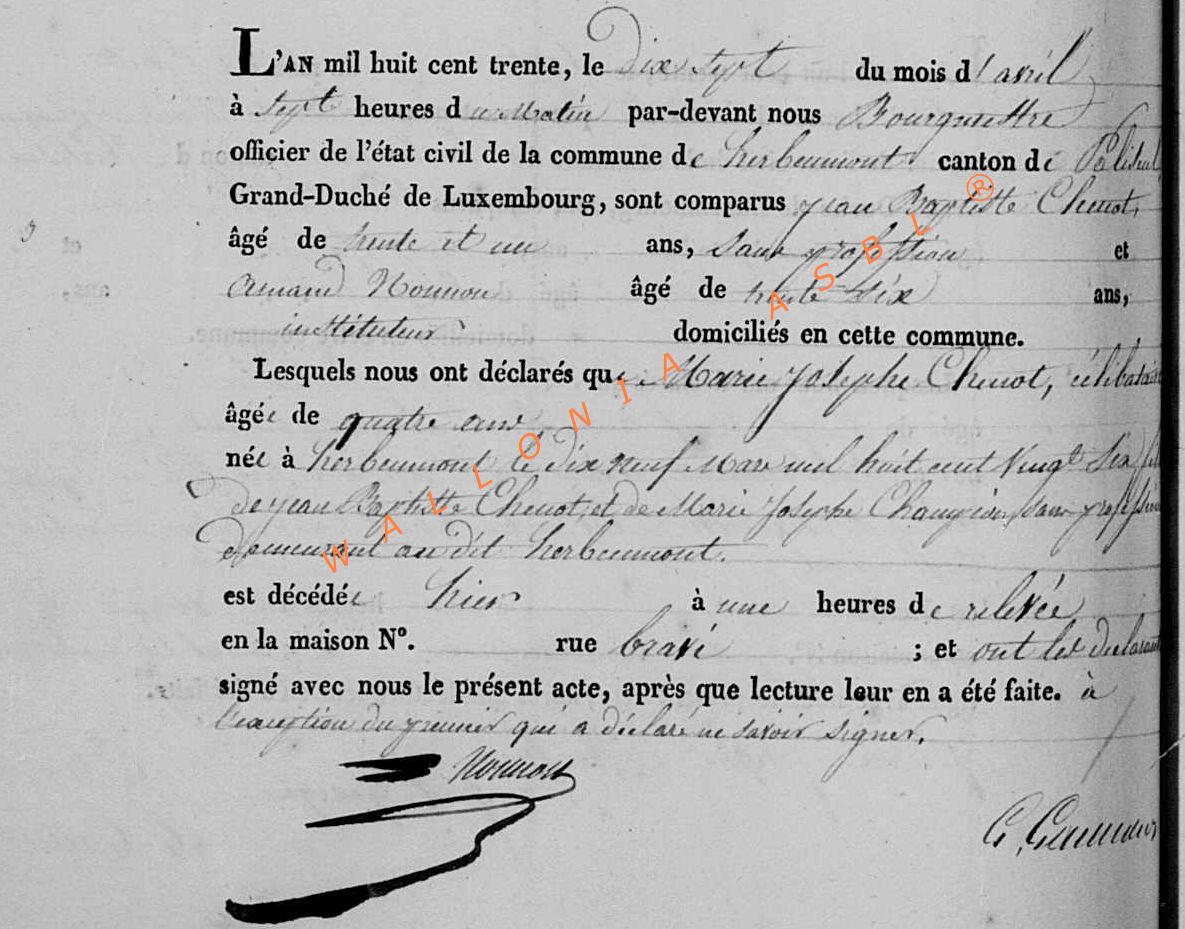 L'AN mil huit cent trente, le Dix Sept du mois d'avril
à Sept heures du Matin par-devant nous Bourguettre
officier de l'état civil de la commune de herbeumont canton de Paliseul
Grand-Duché de Luxembourg, sont comparus jean Baptiste Chenot,
âgé de trente et un ans, Sans profession et
Amand Nonnon âgé de trente Six ans,
instituteur domiciliés en cette commune.
Lesquels nous ont déclarés que Marie josephe Chenot, célibataire
âgée de quatre ans,
née à herbeumont le dix neuf Mars mil huit cent Vingt Six
de jean Baptiste Chenot, et de Marie josephe sans profession
demeurant au dit herbeumont.
est décédée hier à une heures de relevée
en la maison Nº. rue ; et ont les déclarants
signé avec nous le présent acte, après que lecture leur en a été faite. à
l'exception du premier qui a déclaré ne savoir signer.
Nonnon
WALLONIA ASBL ®